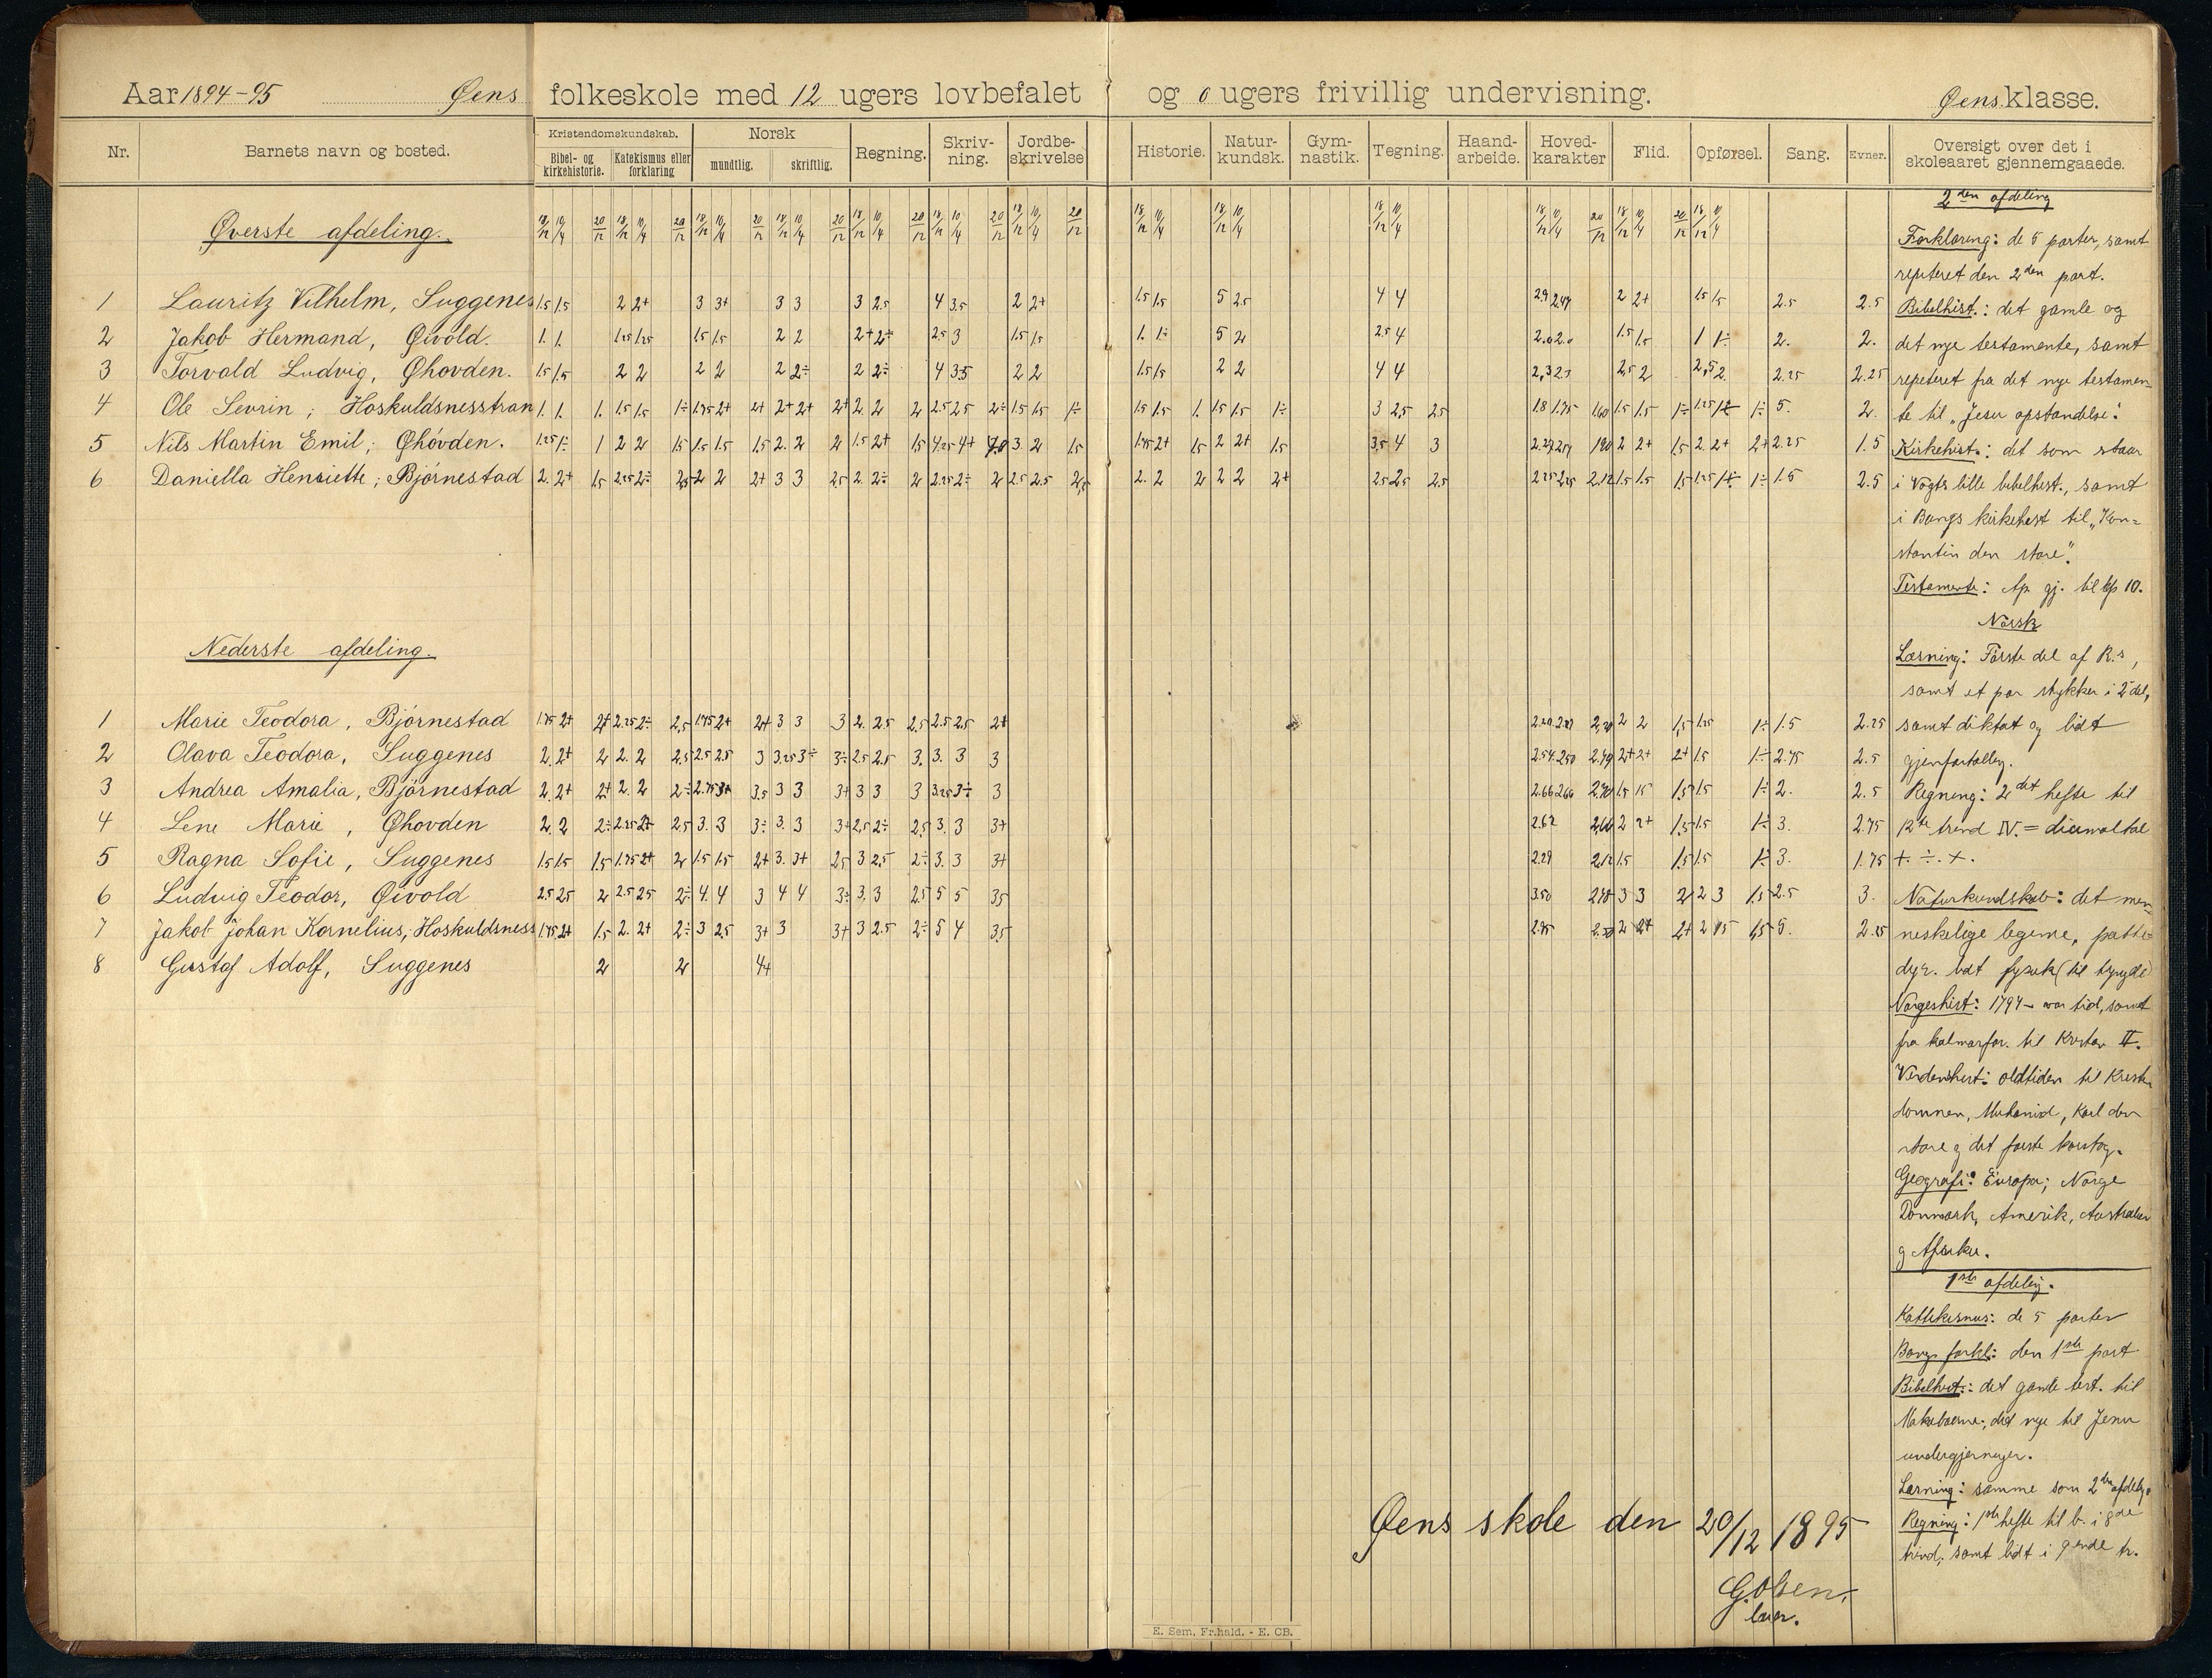 Aar 1894-95 Øens folkeskole med 12 ugers lovbefalet og 0 ugers frivillig undervisning. Øens klasse.
Nr. Barnets navn og bosted. Kristendomskundskab. Norsk Regning. Skriv-ning. Jordbe-skrivelse Historie. Natur-kundsk. Gym-nastik. Tegning. Haand-arbeide. Hoved-karakter Flid. Opførsel. Sang. Evner. Oversigt over det i skoleaaret gjennemgaaede.
Bibel- og kirkehistorie. Katekismus eller forklaring mundtlig. skriftlig.
Øverste afdeling.
1 Lauritz Vilhelm, Suggenes 1.5 1.5 2 2+ 3 3+ 3 3 3 2.5 4 3.5 2 2+ 1.5 1.5 5 2.5 4 4 2 2+ 1.5 1.5 2.5 2.5
2 Jakob Hermand, Øivold. 1. 1. 1.25 1.25 1.5 1.5 2 2 2+ 2÷ 2.5 3 1.5 1.5 1. 1÷ 5 2 2.5 4 2.0 2.0 1.5 1.5 1 1÷ 2. 2.
3 Torvald Ludvig, Øhovden. 1.5 1.5 2 2 2 2 2 2÷ 2 2÷ 4 3.5 2 2 1.5 1.5 2 2 4 4 2.5 2 2.5 2. 2.25 2.25
4 Ole Sevrin; Hoskuldsnesstran 1. 1. 1. 1.5 1.5 1÷ 1.75 2+ 2+ 2+ 2+ 2+ 2. 2 2 2.5 2.5 2÷ 1.5 1.5 1÷ 1.5 1.5 1. 1.5 1.5 1÷ 3 2.5 2.5 1.8 1.75 1.60 1.5 1.5 1÷ 5. 2.
5 Nils Martin Emil; Øhóvden. 1.25 1÷ 1 2 2 1.5 1.5 1.5 1.5 2. 2 2 1.5 2+ 1.5 4.25 4+ 3 2 1.5 1.75 2+ 1.5 2 2+ 1.5 3.5 4 3 1.90 2 2+ 1.5 2. 2+ 2+ 2.25 1.5
6 Daniella Henriette; Bjórnestad 2. 2+ 1.5 2.25 2÷ 2.5 2 2 2+ 3 3 2.5 2. 2÷ 2 2.25 2÷ 2 2.5 2.5 2.5 2. 2 2 2 2 2+ 2.5 2.5 2.5 2.25 2.25 2.12 1.5 1.5 1.5 1÷ 1.5 2.5
Nederste afdeling.
1 Marie Teodora, Bjórnestad 1.75 2+ 2+ 2.25 2÷ 2.5 1.75 2+ 2+ 3 3 3 2. 2.5 2.5 2.5 2.5 2+ 2 2 1.5 1.25 1÷ 1.5 2.25
2 Olava Teodora, Suggenes 2. 2+ 2 2. 2 2.5 2.5 2.5 3 3.25 3÷ 3÷ 2.5 2.5 3. 3. 3 3 2.54 2.50 2+ 2+ 2+ 1.5 1÷ 2.75 2.5
3 Andrea Amalia, Bjórnestad 2. 2+ 2+ 2. 2 2÷ 2.75 3+ 3.5 3 3 3+ 3 3 3 3.25 3÷ 3 2.66 2.66 1.5 1.5 1.5 1.5 1÷ 2. 2.5
4 Lene Marie, Øhovden 2. 2 2÷ 2.25 2+ 2.5 3. 3 3÷ 3. 3 3+ 2.5 2÷ 2.5 3. 3 3+ 2.62 2 2+ 1.5 1.5 1÷ 3. 2.75
5 Ragna Sofie, Suggenes 1.5 1.5 1.5 1.75 2+ 2 1.5 1.5 2+ 3. 3+ 2.5 3 2.5 2÷ 3. 3 3+ 2.29 2.12 1.5 1.5 1.5 1÷ 3. 1.75
6 Ludvig Teodor, Øivold 2.5 2.5 2 2.5 2.5 2÷ 4. 4 3 4 4 3÷ 3. 3 2.5 5 5 3.5 3.50 3 3 2 2 3 1.5 2.5 3.
7 Jakob Johan Kornelius, Hoskuldsness 1.75 2+ 1.5 2. 2+ 2÷ 3 2.5 3+ 3 3+ 3 2.5 2÷ 5 4 3.5 2.75 2 2+ 2+ 2 1.5 1.5 5. 2.25
8 Gustaf Adolf, Suggenes 2 2 4+
2den afdeling
Forklaring: de 5 parter, samt
repeteret den 2den part.
Bibelhist.: det gamle og
det nye testamente, samt
repeteret fra det nye testamen
te til "Jesu opstandelse".
Kirkehist.: det som staar
i Vogts lille bibelhist., samt
i Bangs kirkehist til "Kon=
stantin den store".
Testamente: Ap. gj. til kp 10.
Norsk
Læsning: Første del af R.s,
samt et par stykker i 2 del,
samt diktat og lidt
gjenfortælling.
Regning: 2det hefte til
trind IV. = diесmaltal
+. ÷. ×.
Naturkundskab: det men
neskelige legeme, patte=
dyr. lidt fysik (til tyngde)
Norgeshist: 1797 – vor tid, samt
fra kalmarfor. til Kristian II.
Verdenshist: oldtiden til Kristen
dommen, Muhamed, Karl den
store og det første korstog.
Geografi: Europa; Norge
Danmark, Amerik, Australien
og Afrika.
1ste afdeling.
Kattekismus: de 5 parter
Bangs forkl: den 1ste part
Bibelhist.: det gamle test. til
Makabæerne; det nye til Jesu
undergjerninger.
Læsning: samme som 2den afdeling
Regning: 1ste hefte til b. i 8de
trind, samt lidt i 9ende tr.
Øens skole den 20/12 1895
G. Olsen.
lær.
E. Sem. Fr.hald. - E. CB.